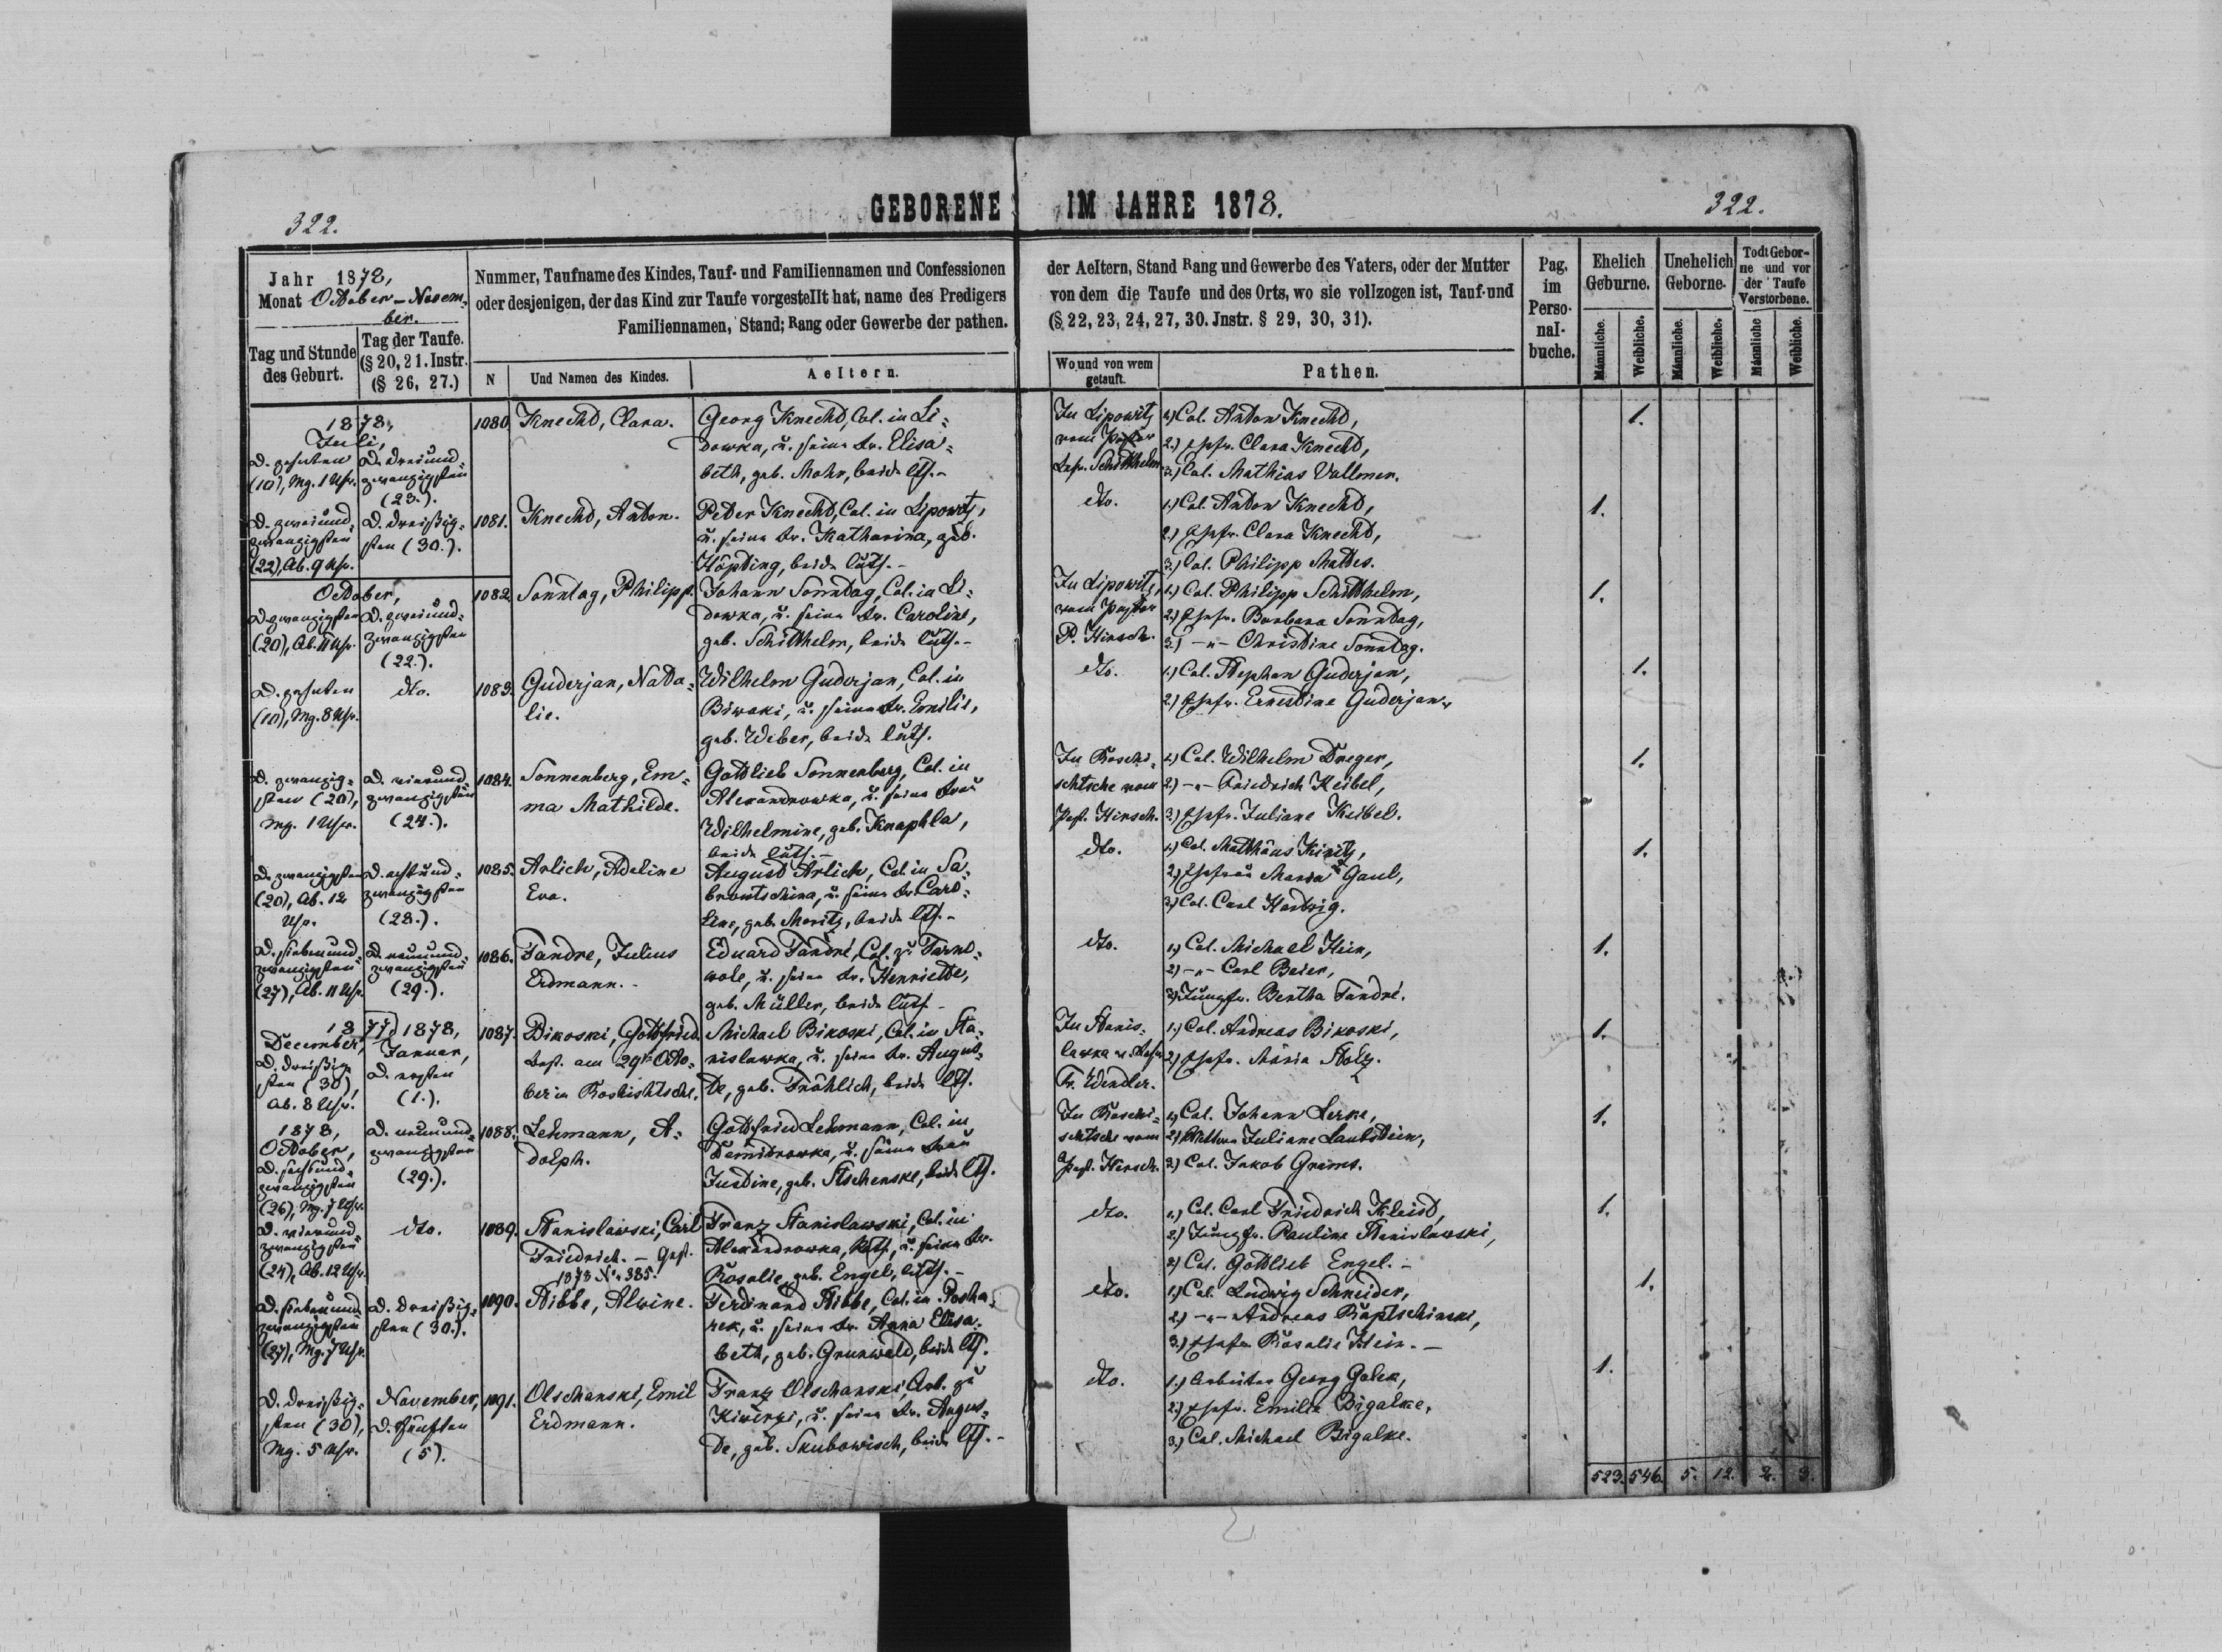 322.
GEBORENE IM JAHRE 1878.
322.
Jahr 1878,
Monat October - Novem-
ber.
Tag und Stunde
des Geburt.
Tag der Taufe.
(§ 20, 21. Instr.
(§ 26, 27.)
Nummer, Taufname des Kindes, Tauf- und Familiennamen und Confessionen
oder desjenigen, der das Kind zur Taufe vorgestellt hat, name des Predigers
Familiennamen, Stand; Rang oder Gewerbe der pathen.
N
Und Namen des Kindes.
Aeltern.
der Aeltern, Stand Rang und Gewerbe des Vaters, oder der Mutter
von dem die Taufe und des Orts, wo sie vollzogen ist, Tauf-und
(§ 22, 23, 24, 27, 30. Jnstr. § 29, 30, 31).
Wo und von wem
getauft.
Pathen.
Pag.
im
Perso-
nal-
buche.
Ehelich
Geburne.
Männliche.
Weibliche.
Unehelich
Geborne.
Männliche.
Weibliche.
Todt Gebor-
ne und vor
der Taufe
Verstorbene.
Männliche
Weibliche.
1878,
Juli,
D. zehnten
(10), Mg. 1 Uhr.
D. dreiund-
zwanzigsten
(23.).
1080.
Knecht, Clara.
Georg Knecht, Col. in Li-
dowka, u. seine Fr. Elisa-
beth, geb. Mohr, beide lth.-
In Lipowitz
vom Pastor
Schütthelm
1.) Col. Anton Knecht,
2.) Ehefr. Clara Knecht,
3.) Col. Mathias Vollmer.
1.
D. zweiund-
zwanzigsten
(22), Ab. 9 Uhr.
D. dreißig-
sten (30.).
1081.
Knecht, Anton.
Peter Knecht, Col. in Lipowitz,
u. seine Fr. Katharina, geb.
Höpting, beide luth.-
dto.
1.) Col. Anton Knecht,
2.) Ehefr. Clara Knecht,
3.) Col. Philipp Mattes.
1.
October,
D. zwanzigsten
(20), Ab. 11 Uhr.
D. zweiund-
zwanzigsten
(22.).
1082.
Sonntag, Philipp.
Johann Sonntag, Col. in Li-
dowka, u. seine Fr. Caroline,
geb. Schütthelm, beide luth.-
In Lipowitz,
vom Pastor
P. Hirsch.
1.) Col. Philipp Schütthelm,
2.) Ehefr. Barbara Sonntag,
3.) -"- Christine Sonntag.
1.
D. zehnten
(10), Mg. 8 Uhr.
dto.
1083.
Guderjan, Nata-
lie.
Wilhelm Guderjan, Col. in
Biwaki, u. seine Fr. Emilie,
geb. Weber, beide luth.
dto.
1.) Col. Stephan Guderjan,
2.) Ehefr. Ernestine Guderjan.
1.
D. zwanzig-
sten (20),
Mg. 1 Uhr.
D. vierund-
zwanzigsten
(24.).
1084.
Sonnenberg, Em-
ma Mathilde.
Gottlieb Sonnenberg, Col. in
Alexandrowka, u. seine Frau
Wilhelmine, geb. Knaphla,
beide luth.-
In Roschi-
schtsche vom
Past. Hirsch.
1.) Col. Wilhelm Dreger,
2.) -"- Friedrich Keibel,
3.) Ehefr. Juliane Keibel.
1.
D. zwanzigsten
(20), Ab. 12
Uhr.
D. achtund-
zwanzigsten
(28.).
1085.
Arlich, Adeline
Eva.
August Arlich, Col. in Sa-
browtschina, u. seine Fr. Caro-
line, geb. Moritz, beide lth.-
dto.
1.) Col. Matthäus Kinitz,
2.) Ehefrau Maria Gaul,
3.) Col. Carl Hartwig.
1.
D. siebenund-
zwanzigsten
(27), Ab. 11 Uhr.
D. neunund-
zwanzigsten
(29.).
1086.
Tandre, Julius
Erdmann.-
Eduard Tandré, Col. zu Tarno-
wole, u. seine Fr. Henriette,
geb. Müller, beide luth.-
dto.
1.) Col. Michael Hein,
2.) -"- Carl Beier,
3.) Jungfr. Bertha Tandré.
1.
1877,
December,
D. dreißig-
sten (30),
Ab. 8 Uhr.
1878,
Januar,
D. ersten
(1.).
1087.
Bikoski, Gottfried.
Best. am 29t Octo-
ber in Roshishtsche.
Michael Bikoski, Col. in Sta-
nislawka, u. seine Fr. Augus-
te, geb. Fröhlich, beide lth.
In Stanis-
lawka
Fr. Wendler.
1.) Col. Andreas Bikoski,
2.) Ehefr. Maria Stolz.
1.
1878,
October,
D. sechsund-
zwanzigsten
(26), Mg. 7 Uhr.
D. neunund-
zwanzigsten
(29.).
1088.
Lehmann, A-
dolph.
Gottfried Lehmann, Col. in
Demidrowka, u. seine Frau
Justine, geb. Stschenske, beide lth.
In Roschi-
schtsche vom
Past. Hirsch.
1.) Col. Johann Lerke,
2.) Wittwe Juliane Laubstein,
3.) Col. Jakob Grams.
1.
D. vierund-
zwanzigsten
(24), Ab. 12 Uhr.
dto.
1089.
Stanislawski, Carl
Friedrich. - Gest.
1878 No. 385.
Franz Stanislawski, Col. in
Alexandrowka, Kath., u. seine Fr.
Rosalie, geb. Engel, luth.-
dto.
1.) Col. Carl Friedrich Kleist,
2.) Jungfr. Pauline Stanislawski,
3.) Col. Gottlieb Engel.-
1.
D. siebenund-
zwanzigsten
(27), Mg. 7 Uhr.
D. dreißig-
sten (30.).
1090.
Stibbe, Alwine.
Ferdinand Stibbe, Col. in Posha-
rek, u. seine Fr. Anna Elisa-
beth, geb. Grunwald, beide lth.
dto.
1.) Col. Ludwig Schneider,
2.) -"- Andreas Raptschinski,
3.) Ehefr. Rosalie Hein.-
1.
D. dreißig-
sten (30),
Mg. 5 Uhr.
November,
D. fünften
(5).
1091.
Olschanski, Emil
Erdmann.
Franz Olschanski, Arb. zu
Kiwerzi, u. seine Fr. Augus-
te, geb. Skubowisch, beide lth.-
dto.
1.) Arbeiter Georg Golek,
2.) Ehefr. Emilie Bigalke,
3.) Col. Michael Bigalke.
1.
523. 546. 5. 12. 2. 3.